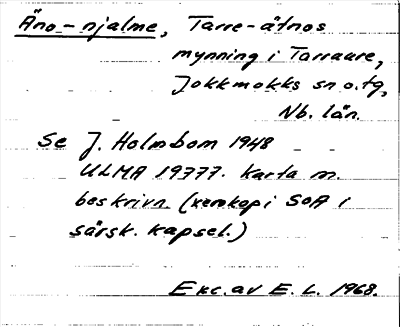 Äno-njalme, Tarre-ätnos
mynning i Tarraure,
Jokkmokks sn o. tg,
Nb. län.
Se J. Holmbom 1948
ULMA 19777. Karta m.
beskrivn (xerokop i SOA i
särsk. kapsel.)
Exc. av E. L. 1968.